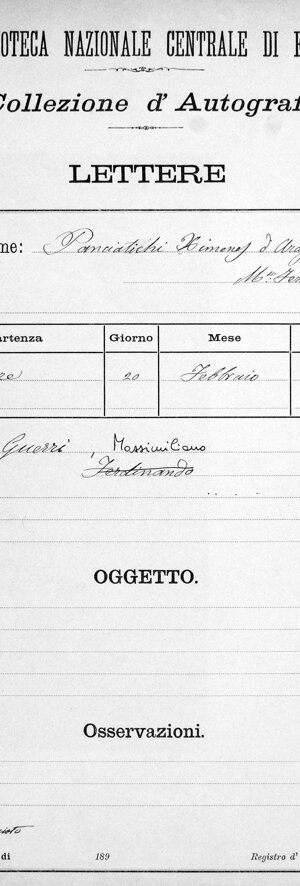 OTECA NAZIONALE CENTRALE DI
Collezione d' Autograf
LETTERE
me: Panciatichi Ximenes d'Arag
artenza Giorno Mese
20 Febbraio
Guerri, Massimiliano
Ferdinando
OGGETTO.
Osservazioni.
di 189 Registro d'